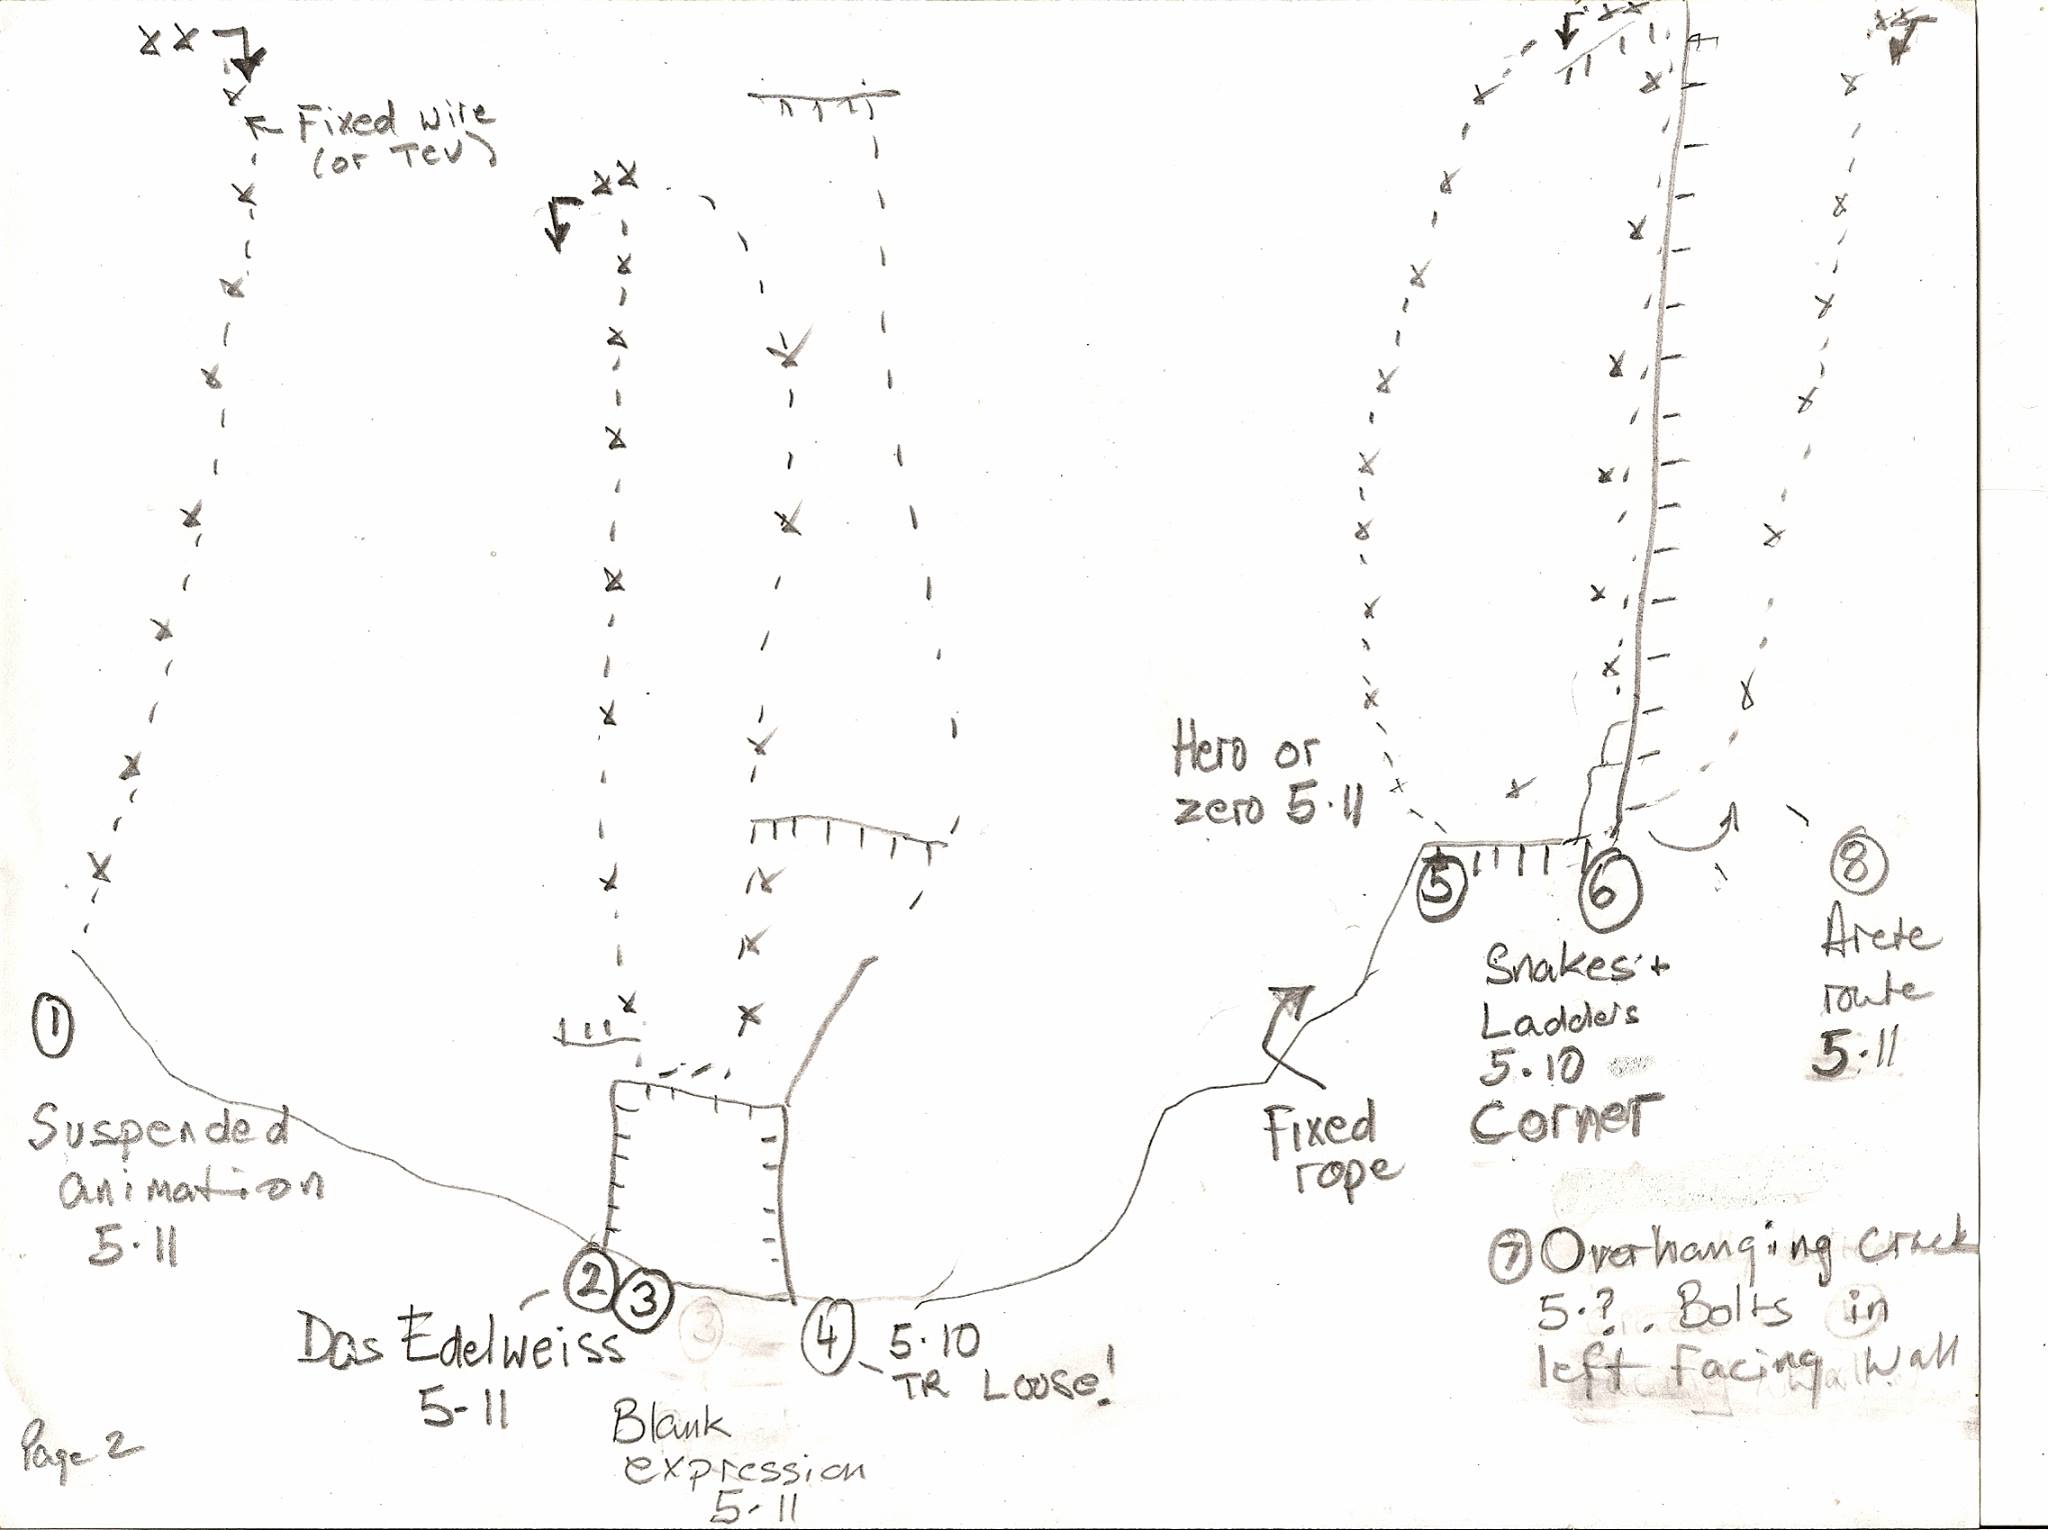 Fixed wire
(or TCU)
Hero or
zero 5.11
5
6
8
Arete
route
5.11
Snakes +
Ladders
5.10
Corner
1
Suspended
animation
5.11
Fixed
rope
7 Overhanging crack
5.? . Bolts in
left facing wall
2
3
3
Das Edelweiss
5-11
4
5.10
TR Loose!
Blank
expression
5-11
Page 2